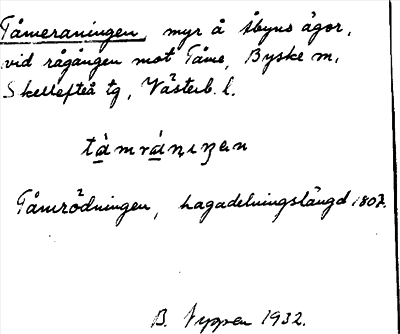 Tåmeraningen, myr å Åbyns ägor,
vid rågången mot Tåme, Byske sn,
Skellefteå tg, Västerb. l.
tàmráningen
Tåmrödningen, hagadelningslängd 1807.
B. 1932.